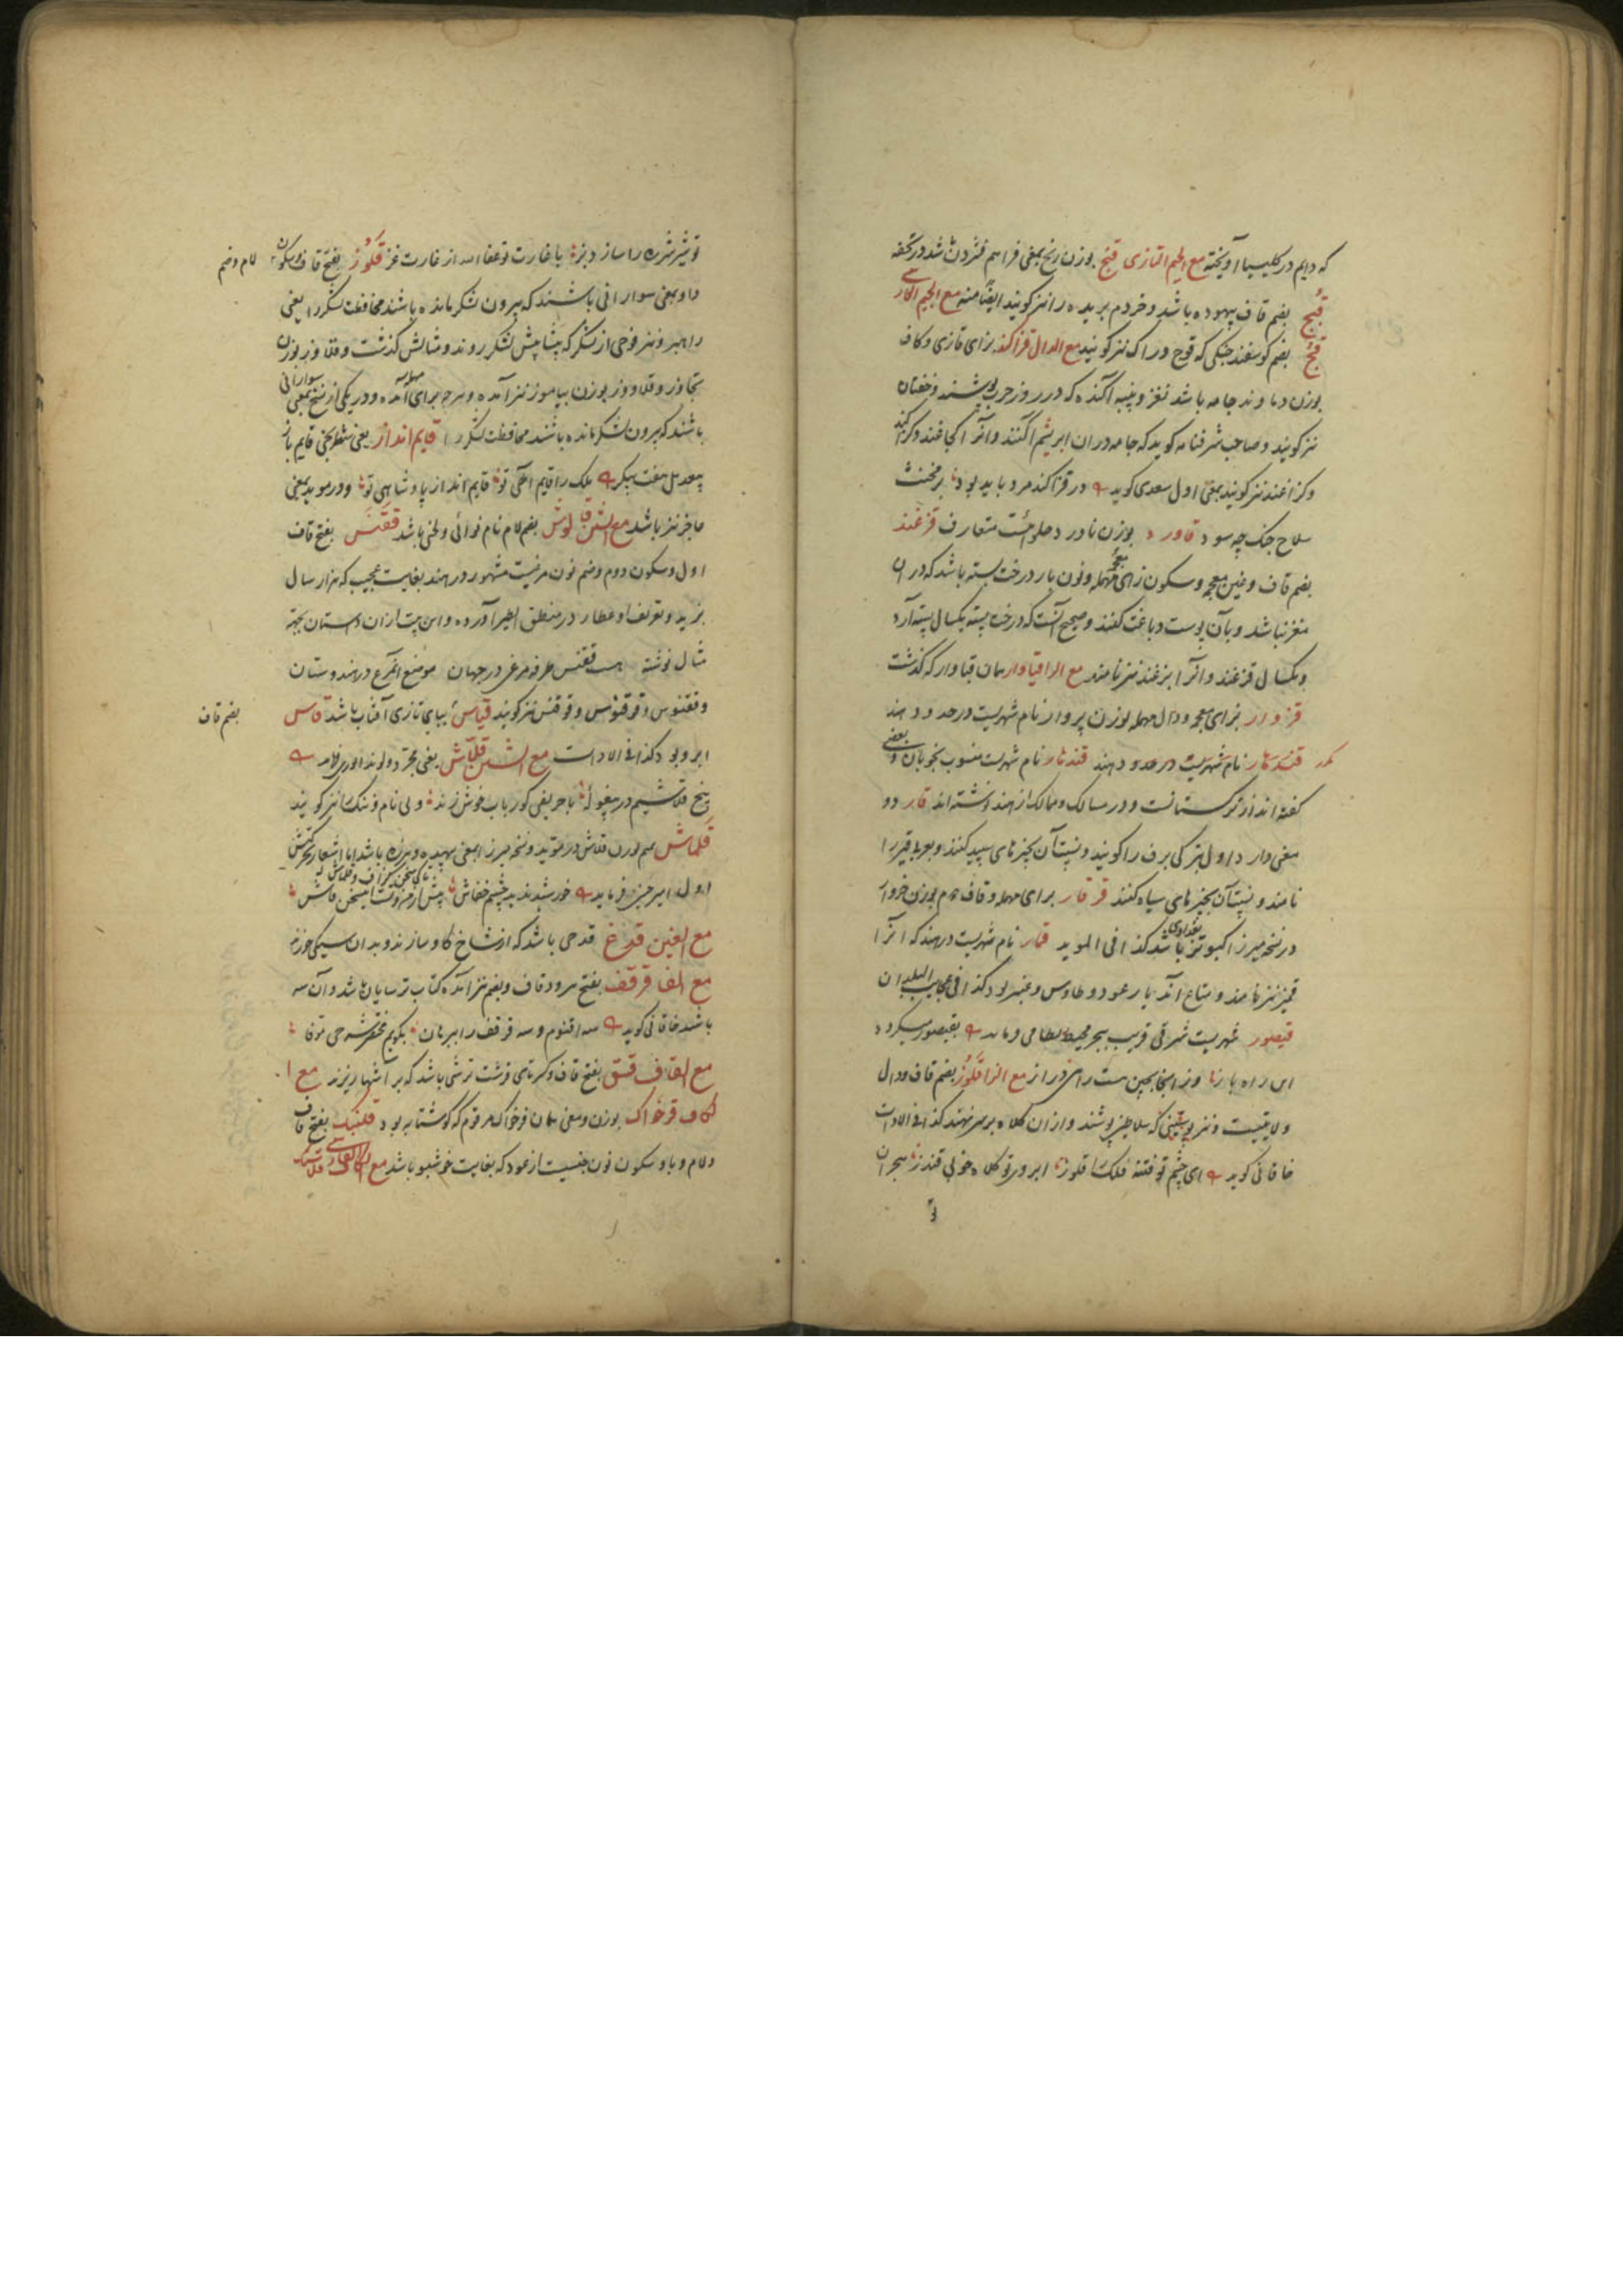 که دایم در کلیسیا آویخته مع الجیم التازی قنج بوزن رنج بمعنی فراهم فشردن شد در تحفه
قبج بضم قاف بیهوده باشد و خر دم بریده را نیز کویند ایضا منه مع الجیم الفارسی
قچ بضم کوسفند جنکی که قوچ و راک نیز کویند مع الدال قزاکند بزای تازی و کاف
بوزن دماوند جامه باشد نغز و پنبه آکنده که در روز حرب پوشند و خفتان
نیز کویند و صاحب شرفنامه کوید که جامه در ان ابریشم آکنند و آنرا کجاغند و کژاکند
و کزاغند نیز کویند بمعنی اول سعدی کوید در قزاکند مرد باید بود بر مخنث
سلاح جنک چه سود قاورد بوزن نادرد حلوائیست متعارف قزغند
بضم قاف و غین معجمه و سکون زای معجمه و نون بار درخت پسته باشد که در ان
مغز نباشد و بآن پوست دباغت کنند و صحیح آنست که درخت پسته یکسال پسته آرد
و یکسال قزغند و آنرا بزغند نیز نامند مع الرا قباوار همان قباوار که گذشت
قزدار بزای معجمه و دال مهمله بوزن پروار نام شهریست در حدود هند
قندهار نام شهریست در حدود هند قندهار نام شهریست منسوب بخوبان و بعضی
کفته اند از ترکستانست و در مسالک و ممالک از هند نوشته اند قار دو
معنی دارد اول بترکی برف را کویند و نسبت آن بچیزهای سپید کنند و بعربی قیر را
نامند و نسبت آن بچیزهای سیاه کنند قرقار برای مهمله و قاف دوم بوزن خروار
در نسخه میرزا کبوتر بغدادی باشد کذا فی الموید قمار نام شهریست در هند که آنرا
قمیز نیز نامند و متاع آندیار عود و طاوس و عنبر بود کذا فی عجایب البلدان
قیصور شهریست شرقی قریب ببحر محیط نظامی فرماید بقیصور میکرد
این راه باز وز اینجا بچین هست راهی دراز مع الزا قندز بضم قاف و دال
ولایتیست و نیز پوستینی که سلاطین پوشند و از ان کلاه بر سر نهند کذا فی الادات
خاقانی کوید ای چشم تو فتنه فلک را قلوز ابروی تو کلاه خوبی قندز هجران
تو شیر شرزه را سازد بز با غارت تو عفا الله از غارت غز قلوز بفتح قاف و سکون لام و ضم
واو بمعنی سوارانی باشند که بیرون لشکر مانده باشند محافظت لشکر را یعنی
راهبر و نیز فوجی از لشکر که پیشاپیش لشکر روند و مثالش کذشت و قلاوز بوزن
تجاوز و قلاووز بوزن بیاموز نیز آمده و هر سه برای مهمله آمده و در یکی از نسخ بمعنی سوارانی
باشند که بیرون لشکر مانده باشند محافظت لشکر را قایم انداز یعنی شطرنجی قایم باز
هفت پیکر ملک را قایم الهی تو قایم انداز پادشاهی تو و در موید بمعنی
عاجز نیز باشد مع الشین قالوش بضم لام نام نوائی و لحنی باشد ققنس بفتح قاف
اول و سکون دوم و ضم نون مرغیست مشهور در هند بغایت عجیب که هزار سال
بزید و تعریف او عطار در منطق الطیر آورده و این بیت از ان داستان بجهة
مثال نوشته هست ققنس طرفه مرغی در جهان موضع آن مرغ در هندوستان
و ققنوس و قوقنوس و قوقنس نیز کویند قیاس بیای تازی آفتاب باشد قاس بضم قاف
ابرو بود کذا فی الادات مع الشین قلاش یعنی مجرد و لوند انوری فرماید
پنج قلاشیم در بیغوله با حریفی کو رباب خوش زند
قلماش بوزن قلاش در موید و نسخه میرزا بمعنی بیهوده و هرزه باشد
اول امیر خسرو فرماید خورشید ندید چشم خفاش
مع الغین قدغ قدحی باشد که از شاخ کاو سازند و بدان سیکی خورند
مع الفا قرقف بفتح هر دو قاف و بضم نیز آمده کتاب ترسایان باشد و آن سه
باشد خاقانی کوید سه اقنوم و سه قرقف را ببرهان بکویم مختصر شرح موفا
مع القاف قتق بفتح قاف و کسر تای قرشت ترشی باشد که بر آشها ریزند مع ا
لکاف قرخواک بوزن و معنی همان فرخواک مرقوم که کوشتابه بود قلنبک بفتح قاف
و لام و با و سکون نون جنسیست از عود که بغایت خوشبو باشد مع الکاف الفارسی قلاسنک